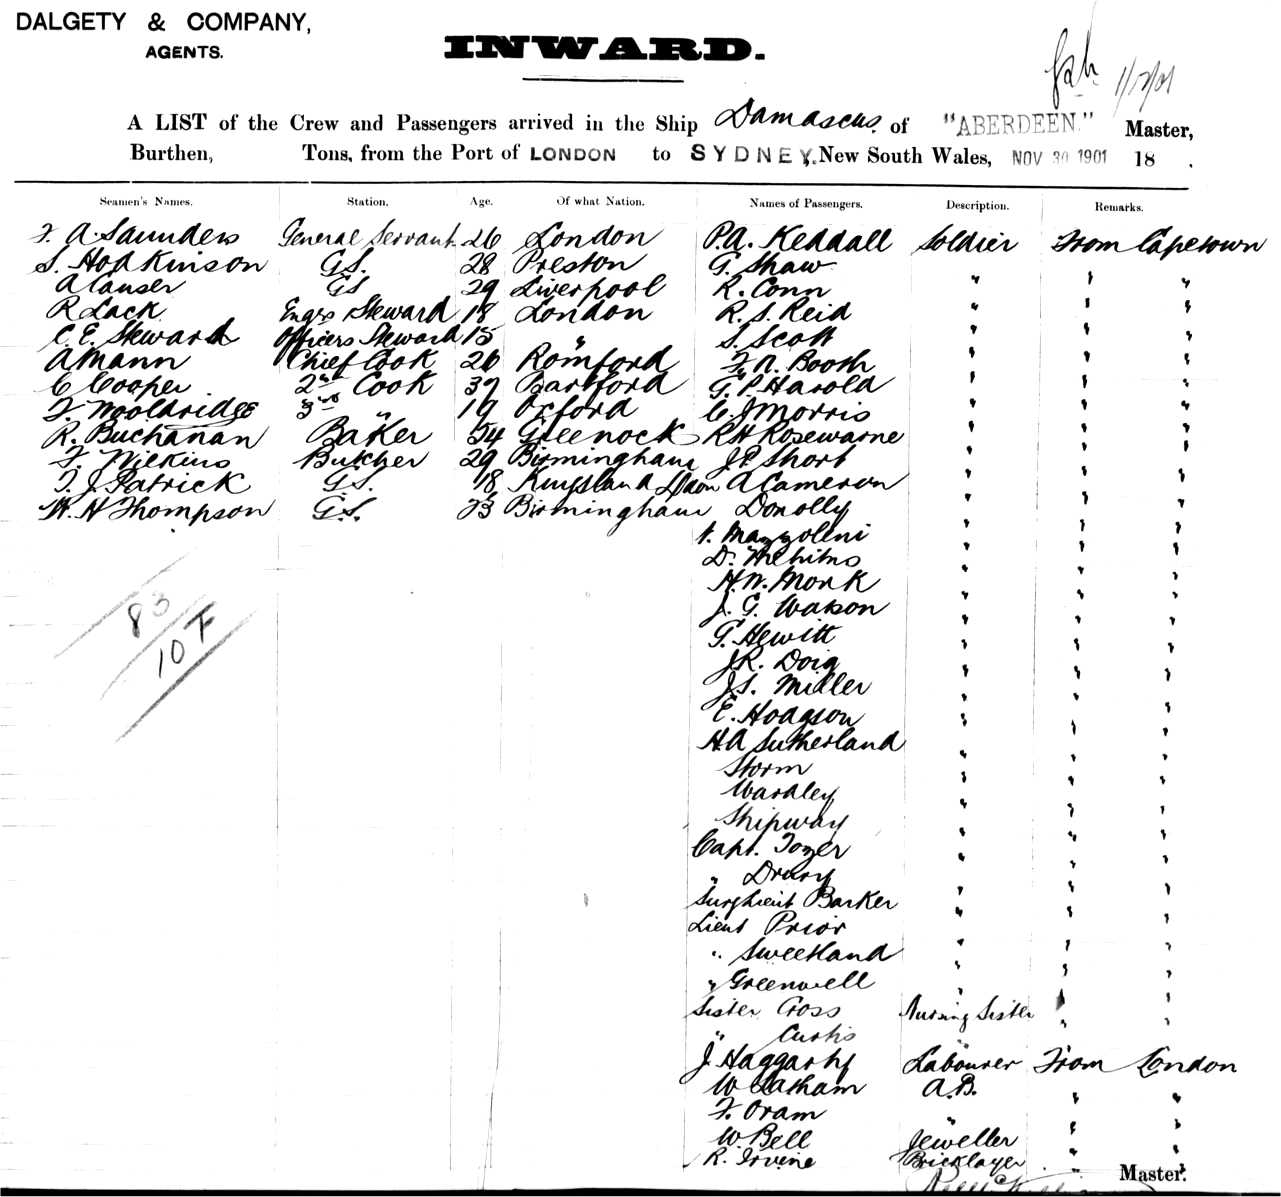 DALGETY & COMPANY,
AGENTS.
INWARD.
1/12/01
A LIST of the Crew and Passengers arrived in the Ship Damascus, of "ABERDEEN." Master,
Burthen, Tons, from the Port of LONDON to SYDNEY. New South Wales, NOV 30 1901 18 .
Seamen's Names. Station. Age. Of what Nation. Names of Passengers. Description. Remarks.
F. A. Saunders General Servant 26 London P.A. Keddall Soldier From Capetown
S. Hodkinson G.S. 28 Preston G. Shaw " " "
A Causer GS 29 Liverpool R. Conn " " "
R Lack Engrs Steward 18 London R. S. Reid " " "
C. E. Steward Officers Steward 15 " S. Scott " " "
A Mann Chief Cook 26 Romford F. A. Booth " " "
C Cooper 2nd Cook 37 Dartford G. P. Harold " " "
F Wooldridge 3rd " 19 Oxford C. J Morris " " "
R. Buchanan Baker 54 Greenock R H Rosewarne " " "
F. Wilkins Butcher 29 Birmingham J P Short " " "
T. J. Patrick G.S. 18 Kingsland A Cameron " " "
W. H Thompson G.S. 23 Birmingham Donolly " " "
Mazzolini " " "
D. " " "
H. W. Monk " " "
J. G. Watson " " "
G. Hewitt " " "
J R. Doig " " "
J S. Miller " " "
E. Hodgson " " "
H A Sutherland " " "
Storm " " "
Wardley " " "
Shipway " " "
Capt. Tozer " " "
" Drury " " "
Barker " " "
Lieut Prior " " "
" Sweetland " " "
" Greenwell " " "
Sister Cross Nursing Sister " "
" Curtis " " "
J Haggarty Labourer From London
W Latham A.B. " "
F. Oram " " "
W. Bell Jeweller " "
R. Irvine Bricklayer " "
Master.
83
10 F